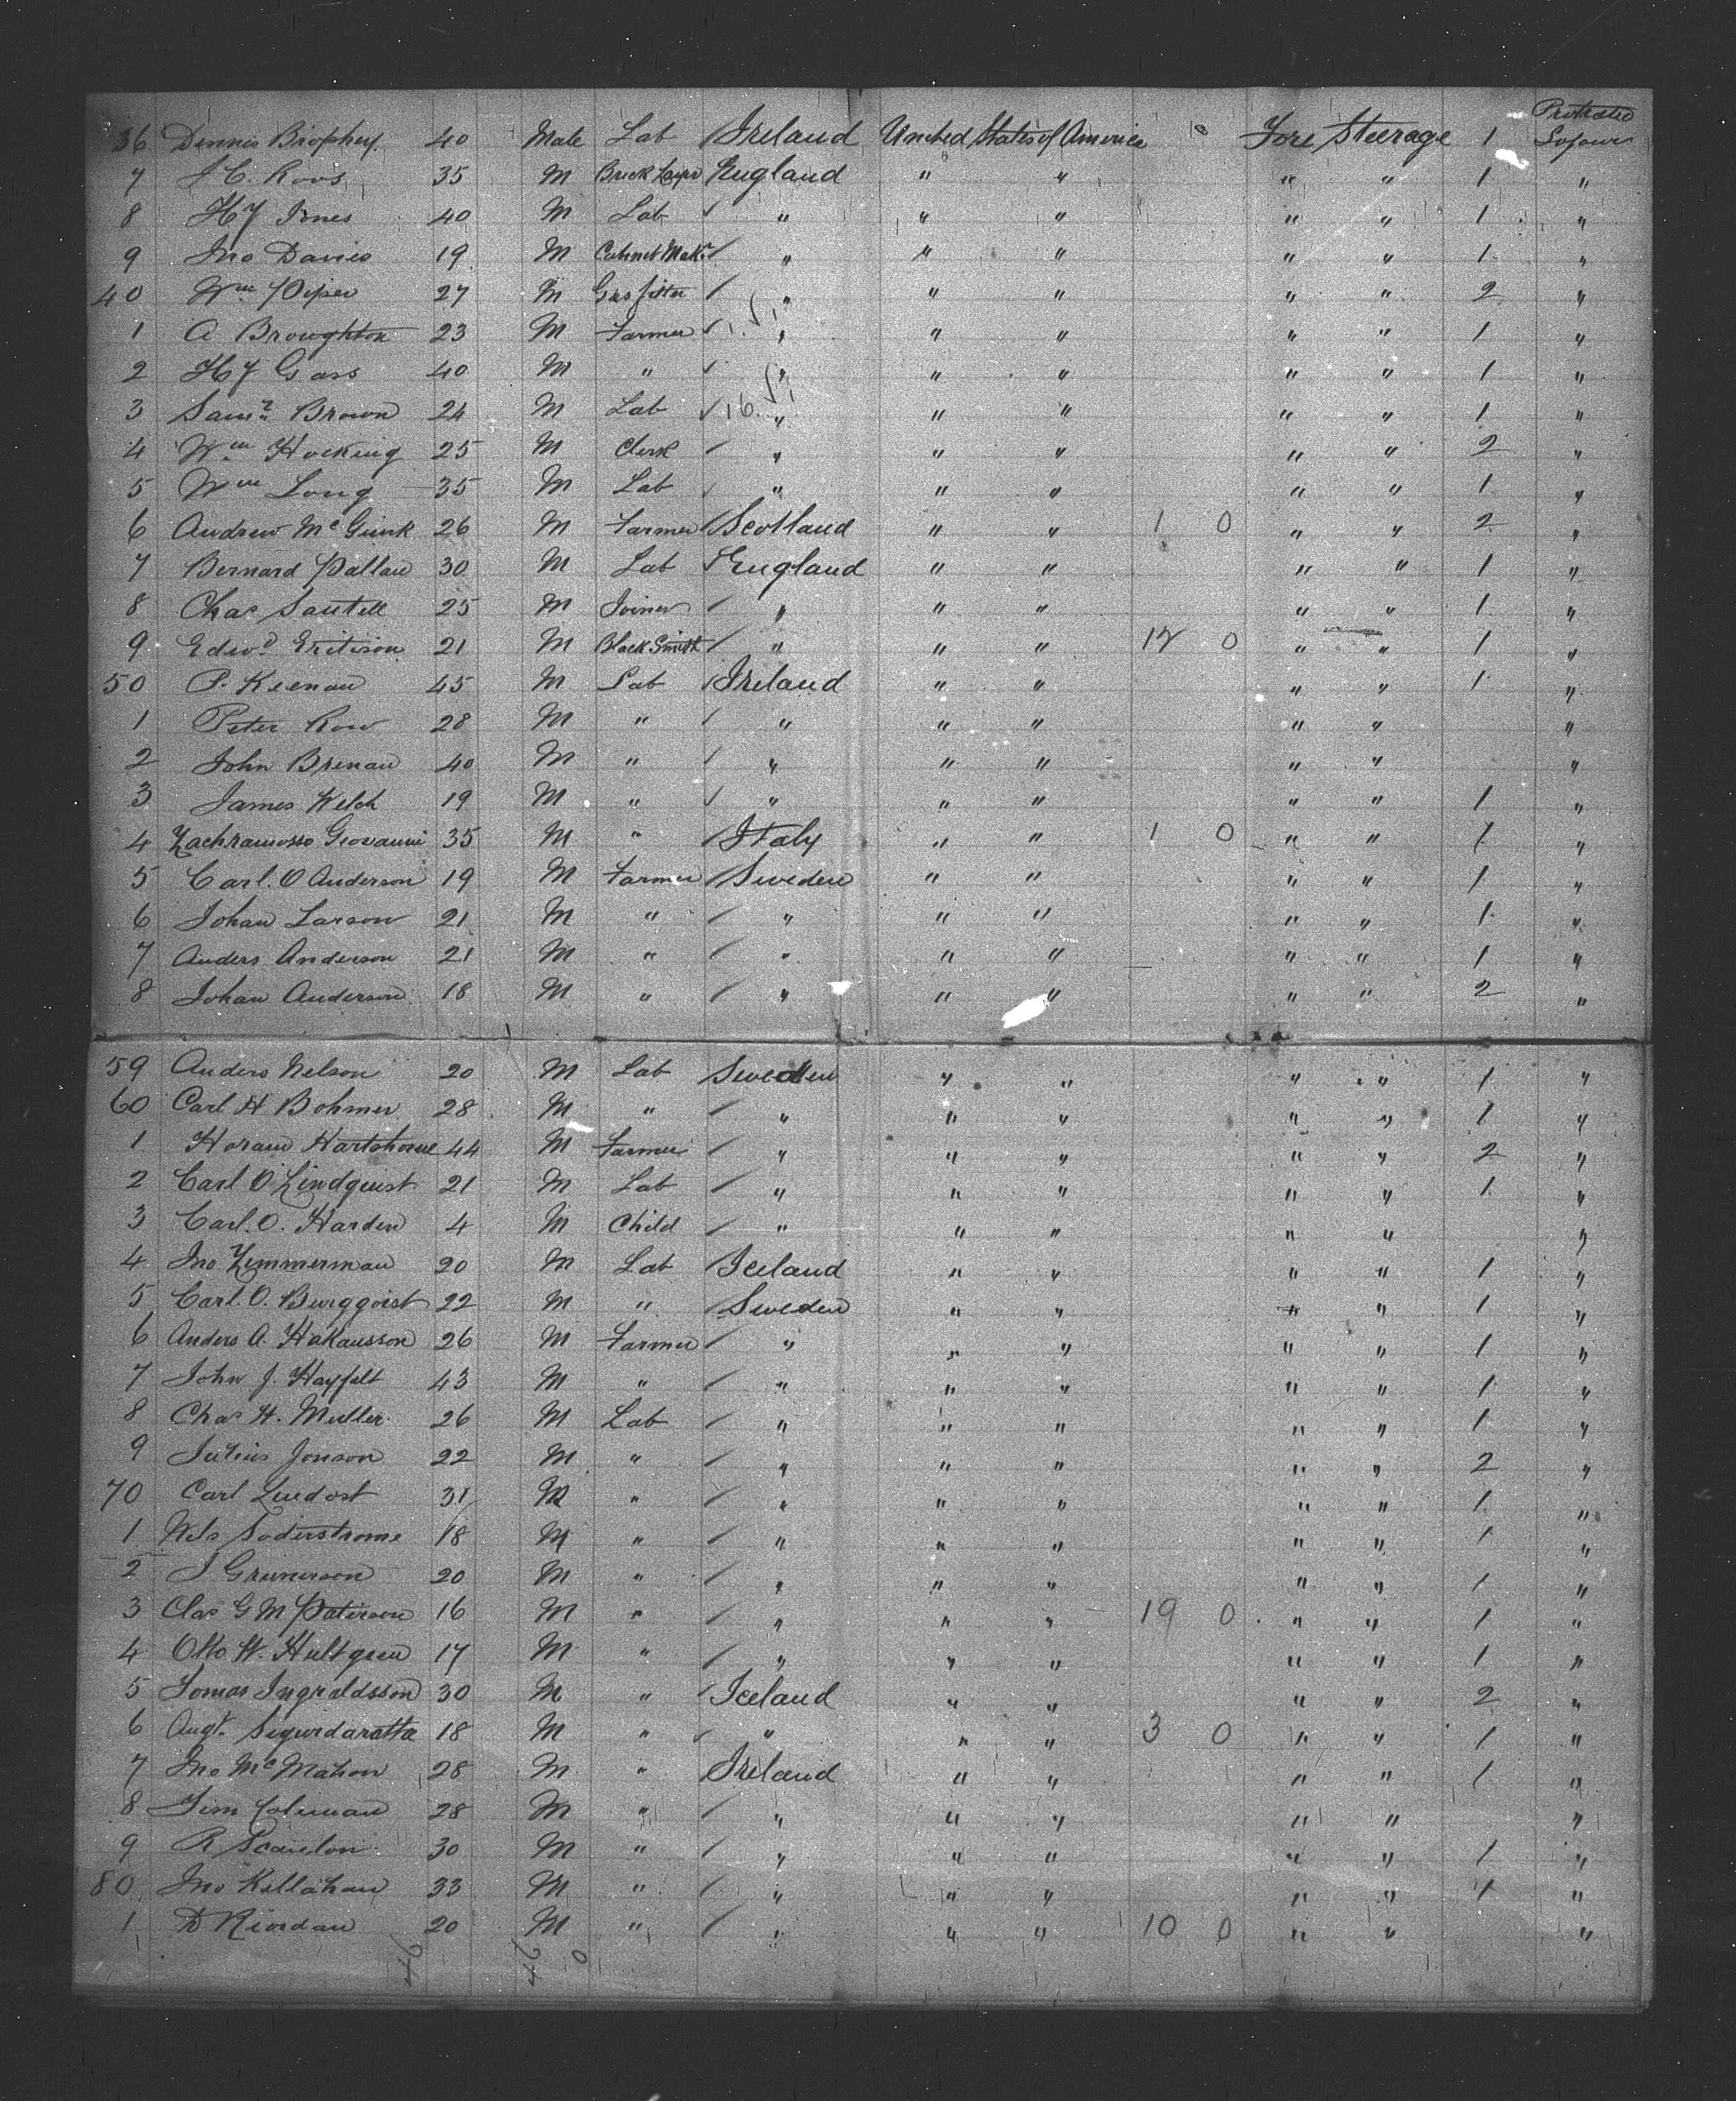 36 Dennis Brophey 40 Male Lab Ireland United States of America Fore Steerage 1 Protracted Sojourn
7 J C. Roos 35 M Brick Layer England " " " " 1 "
8 Hy Jones 40 M Lab " " " " " 1 "
9 Jno Davies 19 M Cabinet Makr " " " " " 1 "
40 Wm Piper 27 M Gas fitter " " " " " 2 "
1 A Broughton 23 M Farmer " " " " " 1 "
2 Hy Gass 40 M " " " " " " 1 "
3 Saml Brown 24 M Lab 16. " " " " " 1 "
4 Wm Hocking 25 M Clerk " " " " " 2 "
5 Wm Long 35 M Lab " " " " " 1 "
6 Andrew McGuink 26 M Farmer Scotland " " 1 0 " " 2 "
7 Bernard Pallan 30 M Lab England " " " " 1 "
8 Chas Sautell 25 M Joiner " " " " " 1 "
9 Edwd 21 M Black Smith " " " 12 0 " " 1 "
50 P. Keenan 45 M Lab Ireland " " " " 1 "
1 Peter Row 28 M " " " " " " "
2 John Brenan 40 M " " " " " " "
3 James Welch 19 M " " " " " " 1 "
4 Zachramosso Giovanni 35 M " Italy " " 1 0 " " 1 "
5 Carl. O Anderson 19 M Farmer Sweden " " " " 1 "
6 Johan Larson 21 M " " " " " " 1 "
7 Anders Anderson 21 M " " " " " " 1 "
8 Johan Anderson 18 M " " " " " " 2 "
59 Anders Nelson 20 M Lab Sweden " " " " 1 "
60 Carl H Bohmer 28 M " " " " " " 1 "
1 Horam Hartohorne 44 M Farmer " " " " " 2 "
2 Carl O Lindquist 21 M Lab " " " " " 1 "
3 Carl. O. Harden 4 M Child " " " " " "
4 Jno Zimmerman 20 M Lab Iceland " " " " 1 "
5 Carl. O. Burgqoist 22 M " Sweden " " " " 1 "
6 Anders A. Hakansson 26 M Farmer " " " " " 1 "
7 John J. Hayfelt 43 M " " " " " " 1 "
8 Chas H. Muller 26 M Lab " " " " " 1 "
9 Julius Jonson 22 M " " " " " " 2 "
70 Carl Lindost 31 M " " " " " " 1 "
1 Nils Soderstrome 18 M " " " " " " 1 "
2 J Grunerson 20 M " " " " " " 1 "
3 Clas G M Paterson 16 M " " " " 19 0 " " 1 "
4 Otto W. Hultgren 17 M " " " " " " 1 "
5 Tomas Ingraldsson 30 M " Iceland " " " " 2 "
6 Augt. Sigurdaratta 18 M " " " " 3 0 " " 1 "
7 Jno McMahon 28 M " Ireland " " " " 1 "
8 Tim Coleman 28 M " " " " " " "
9 R Scanlon 30 M " " " " " " 1 "
80 Jno Kallahan 33 M " " " " " " 1 "
1 D Riordan 20 M " " " " 10 0 " " "